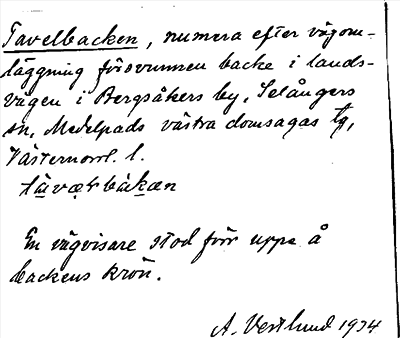 Tavelbacken, numera efter vägom-
läggning försvunnen backe i lands-
vägen i Bergsåkers by, Selångers
sn, Medelpads västra domsagas tg,
Västernorrl. l.
En vägvisare stod förr uppe å
backens krön.
A. Vestlund 1934